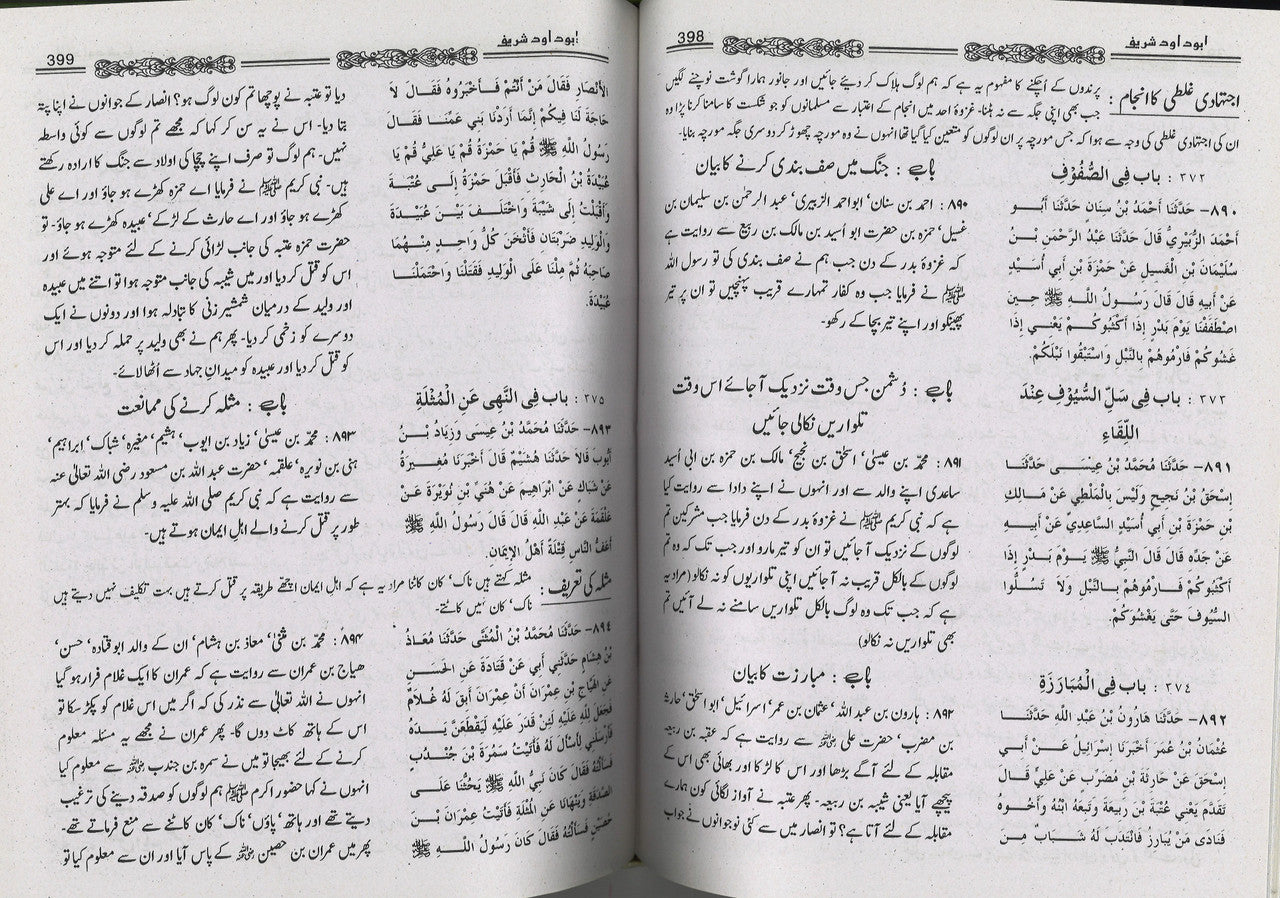 ابوداود شریف
398
اجتہادی غلطی کا انجام :
پرندوں کے اُچکنے کا مفہوم یہ ہے کہ ہم لوگ ہلاک کر دیئے جائیں اور جانور ہمارا گوشت نوچنے لگیں
جب بھی اپنی جگہ سے نہ ہٹنا۔ غزوۂ احد میں انجام کے اعتبار سے مسلمانوں کو جو شکست کا سامنا کرنا پڑا وہ
ان کی اجتہادی غلطی کی وجہ سے ہوا کہ جس مورچہ پر ان لوگوں کو متعین کیا گیا تھا انہوں نے وہ مورچہ چھوڑ کر دوسری جگہ مورچہ بنایا۔
۳۷۲ : باب فِی الصُّفُوْفِ
۸۹۰- حَدَّثَنَا أَحْمَدُ بْنُ سِنَان حَدَّثَنَا أَبُو
أَحْمَدَ الزُّبَيْرِيُّ قَالَ حَدَّثَنَا عَبْدُ الرَّحْمَنِ بْنُ
سُلَيْمَانَ بْنِ الْغَسِيلِ عَنْ حَمْزَةَ بْنِ أَبِي أُسَيْدٍ
عَنْ أَبِيهِ قَالَ قَالَ رَسُولُ اللَّهِ ﷺ حِينَ
اصْطَفَفْنَا يَوْمَ بَدْرٍ إِذَا أَكْثَبُوكُمْ يَعْنِي إِذَا
غَشُوكُمْ فَارْمُوهُمْ بِالنَّبْلِ وَاسْتَبْقُوا نَبْلَكُمْ.
۳۷۳ : باب فِی سَلِّ السُّیُوْفِ عِنْدَ
اللِّقَاءِ
۸۹۱- حَدَّثَنَا مُحَمَّدُ بْنُ عِيسَى حَدَّثَنَا
إِسْحَقُ بْنُ نَجِيحٍ وَلَيْسَ بِالْمَلْطِي عَنْ مَالِكِ
بْنِ حَمْزَةَ بْنِ أَبِي أُسَيْدٍ السَّاعِدِيِّ عَنْ أَبِيهِ
عَنْ جَدِّهِ قَالَ قَالَ النَّبِيُّ ﷺ يَوْمَ بَدْرٍ إِذَا
أَكْثَبُوكُمْ فَارْمُوهُمْ بِالنَّبْلِ وَلَا تَسُلُّوا
السُّيُوفَ حَتَّى يَغْشَوْكُمْ.
۳۷٤ : باب فِی الْمُبَارَزَةِ
۸۹۲- حَدَّثَنَا هَارُونُ بْنُ عَبْدِ اللَّهِ حَدَّثَنَا
عُثْمَانُ بْنُ عُمَرَ أَخْبَرَنَا إِسْرَائِيلُ عَنْ أَبِي
إِسْحَقَ عَنْ حَارِثَةَ بْنِ مُضَرِّبٍ عَنْ عَلِيٍّ قَالَ
تَقَدَّمَ يَعْنِي عُتْبَةَ بْنَ رَبِيعَةَ وَتَبِعَهُ ابْنُهُ وَأَخُوهُ
فَنَادَى مَنْ يُبَارِزُ فَانْتَدَبَ لَهُ شَبَابٌ مِنَ
باب : جنگ میں صف بندی کرنے کا بیان
۸۹۰ : احمد بن سنان' ابواحمد الزبیری' عبد الرحمٰن بن سلیمان بن
غسیل' حمزہ بن حضرت ابو اُسید بن مالک بن ربیع سے روایت ہے
کہ غزوۂ بدر کے دن جب ہم نے صف بندی کی تو رسول اللہ
ﷺ نے فرمایا جب وہ کفار تمہارے قریب پہنچیں تو ان پر تیر
پھینکو اور اپنے تیر بچا کے رکھو۔
باب : دُشمن جس وقت نزدیک آ جائے اس وقت
تلواریں نکالی جائیں
۸۹۱ : محمد بن عیسیٰ' اسحٰق بن نجیح' مالک بن حمزہ بن ابی اُسید
ساعدی اپنے والد سے اور انہوں نے اپنے دادا سے روایت کیا
ہے کہ نبی کریم ﷺ نے غزوۂ بدر کے دن فرمایا جب مشرکین تم
لوگوں کے نزدیک آ جائیں تو ان کو تیر مارو اور جب تک کہ وہ تم
لوگوں کے بالکل قریب نہ آ جائیں اپنی تلواریوں کو نہ نکالو (مراد یہ
ہے کہ جب تک وہ لوگ بالکل تلواریں سامنے نہ لے آئیں تم
بھی تلواریں نہ نکالو)
باب : مبارزت کا بیان
۸۹۲ : ہارون بن عبد اللہ' عثمان بن عمر' اسرائیل' ابو اسحٰق' حارثہ
بن مضرب' حضرت علی ؓ سے روایت ہے کہ عقبہ بن ربیعہ
مقابلہ کے لئے آگے بڑھا اور اس کا لڑکا اور بھائی بھی اس کے
پیچھے آیا یعنی شیبہ بن ربیعہ۔ پھر عتبہ نے آواز لگائی کون ہمارے
مقابلہ کے لئے آتا ہے؟ تو انصار میں سے کئی نوجوانوں نے جواب
ابوداود شریف
399
الْأَنْصَارِ فَقَالَ مَنْ أَنْتُمْ فَأَخْبَرُوهُ فَقَالَ لَا
حَاجَةَ لَنَا فِيكُمْ إِنَّمَا أَرَدْنَا بَنِي عَمِّنَا فَقَالَ
رَسُولُ اللَّهِ ﷺ قُمْ يَا حَمْزَةُ قُمْ يَا عَلِيُّ قُمْ يَا
عُبَيْدَةُ بْنُ الْحَارِثِ فَأَقْبَلَ حَمْزَةُ إِلَى عُتْبَةَ
وَأَقْبَلْتُ إِلَى شَيْبَةَ وَاخْتَلَفَ بَيْنَ عُبَيْدَةَ
وَالْوَلِيدِ ضَرْبَتَانِ فَأَثْخَنَ كُلُّ وَاحِدٍ مِنْهُمَا
صَاحِبَهُ ثُمَّ مِلْنَا عَلَى الْوَلِيدِ فَقَتَلْنَا وَاحْتَمَلْنَا
عُبَيْدَةَ.
۳۷۵ : باب فِی النَّهْیِ عَنِ الْمُثْلَةِ
۸۹۳- حَدَّثَنَا مُحَمَّدُ بْنُ عِيسَى وَزِيَادُ بْنُ
أَيُّوبَ قَالَا حَدَّثَنَا هُشَيْمٌ قَالَ أَخْبَرَنَا مُغِيرَةُ
عَنْ شِبَاكٍ عَنْ ابْرَاهِيمَ عَنْ هُنَيِّ بْنِ نُوَيْرَةَ عَنْ
عَلْقَمَةَ عَنْ عَبْدِ اللَّهِ قَالَ قَالَ رَسُولُ اللَّهِ ﷺ
أَعَفُّ النَّاسِ قِتْلَةً أَهْلُ الْإِيمَانِ.
دیا تو عتبہ نے پوچھا تم کون لوگ ہو؟ انصار کے جوانوں نے اپنا پتہ
بتا دیا۔ اس نے یہ سن کر کہا کہ مجھے تم لوگوں سے کوئی واسطہ
نہیں۔ ہم لوگ تو صرف اپنے چچا کی اولاد سے جنگ کا ارادہ رکھتے
ہیں۔ نبی کریم ﷺ نے فرمایا اے حمزہ کھڑے ہو جاؤ اور اے علی
کھڑے ہو جاؤ اور اے حارث کے لڑکے' عبیدہ کھڑے ہو جاؤ۔ تو
حضرت حمزہ عتبہ کی جانب لڑائی کرنے کے لئے متوجہ ہوئے اور
اس کو قتل کر دیا اور میں شیبہ کی جانب متوجہ ہوا تو اتنے میں عبیدہ
اور ولید کے درمیان شمشیر زنی کا تبادلہ ہوا اور دونوں نے ایک
دوسرے کو زخمی کر دیا۔ پھر ہم نے بھی ولید پر حملہ کر دیا اور اس
کو قتل کر دیا اور عبیدہ کو میدانِ جہاد سے اُٹھا لائے۔
باب : مثلہ کرنے کی ممانعت
۸۹۳ : محمد بن عیسیٰ' زیاد بن ایوب' ہشیم' مغیرہ' شباک' ابراہیم'
ہنی بن نویرہ' علقمہ' حضرت عبد اللہ بن مسعود رضی اللہ تعالیٰ عنہ
سے روایت ہے کہ نبی کریم صلی اللہ علیہ وسلم نے فرمایا کہ بہتر
طور پر قتل کرنے والے اہلِ ایمان ہوتے ہیں۔
مثلہ کی تعریف :
مثلہ کہتے ہیں ناک' کان کاٹنا مراد یہ ہے کہ اہلِ ایمان اچھے طریقہ پر قتل کرتے ہیں بہت تکلیف نہیں دیتے ہیں
ناک' کان نہیں کاٹتے۔
۸۹٤- حَدَّثَنَا مُحَمَّدُ بْنُ الْمُثَنَّى حَدَّثَنَا مُعَاذُ
بْنُ هِشَامٍ حَدَّثَنِي أَبِي عَنْ قَتَادَةَ عَنِ الْحَسَنِ
عَنِ الْهَيَّاجِ بْنِ عِمْرَانَ أَنَّ عِمْرَانَ أَبَقَ لَهُ غُلَامٌ
فَجَعَلَ لِلَّهِ عَلَيْهِ لَئِنْ قَدَرَ عَلَيْهِ لَيَقْطَعَنَّ يَدَهُ
فَأَرْسَلَنِي لِأَسْأَلَ لَهُ فَأَتَيْتُ سَمُرَةَ بْنَ جُنْدُبٍ
فَسَأَلْتُهُ فَقَالَ كَانَ نَبِيُّ اللَّهِ ﷺ يَحُثُّنَا عَلَى
الصَّدَقَةِ وَيَنْهَانَا عَنِ الْمُثْلَةِ فَأَتَيْتُ عِمْرَانَ بْنَ
حُصَيْنٍ فَسَأَلْتُهُ فَقَالَ كَانَ رَسُولُ اللَّهِ ﷺ
۸۹۴ : محمد بن مثنیٰ' معاذ بن ہشام' ان کے والد ابو قتادہ' حسن'
ھیاج بن عمران سے روایت ہے کہ عمران کا ایک غلام فرار ہو گیا
انہوں نے اللہ تعالیٰ سے نذر کی کہ اگر میں اس غلام کو پکڑ سکا تو
اس کے ہاتھ کاٹ دوں گا۔ پھر عمران نے مجھے یہ مسئلہ معلوم
کرنے کے لئے بھیجا تو میں نے سمرہ بن جندب ؓ سے معلوم کیا
انہوں نے کہا حضور اکرم ﷺ ہم لوگوں کو صدقہ دینے کی ترغیب
دیتے تھے اور ہاتھ' پاؤں' ناک' کان کاٹنے سے منع فرماتے تھے۔
پھر میں عمران بن حصین ؓ کے پاس آیا اور ان سے معلوم کیا تو